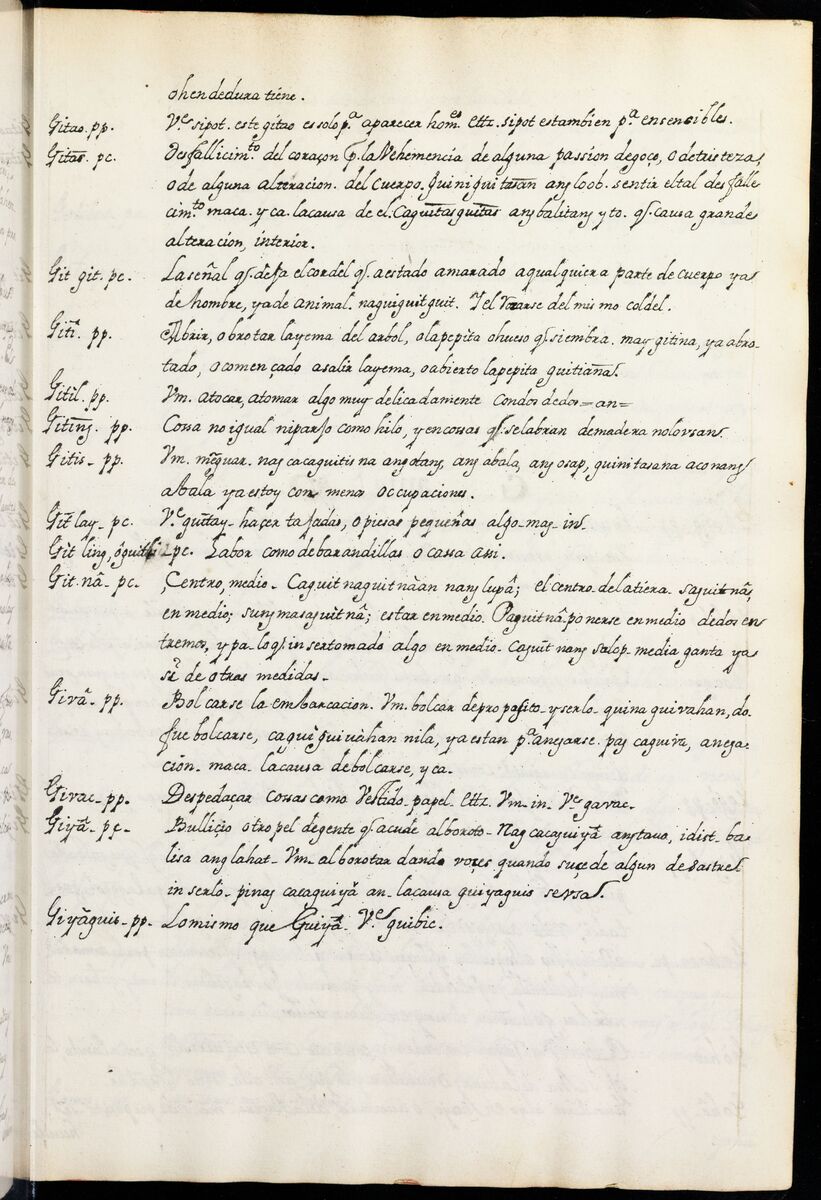 ohendedura tiene.
Gitao. pp. Vᵉ sipot. este gitao es solo pª aparecer homᵉˢ ettz. sipot estambien pª ensensibles.
Gitas. pc. desfallicimᵗᵒ del coraçon p. la Vehemencia de alguna passion degoço, o detristeza,
o de alguna alteracion. del cuerpo. guiniguitasan ang loob. sentir el tal desfalle
cimᵗᵒ maca. y ca. la causa de el. Caguitasguitas ang balitang yto. q. causa grande
alteracion, interior.
Git git. pc. La señal q. dexa el cordel q. a estado amarado a qualquiera parte de cuerpo ya
de hombre, ya de animal. naguiguitguit. Y el del mismo coldel.
Giti. pp. Abrir, o brotar la yema del arbol, o la pepita o hueso q. siembra. may gitina, ya abro-
tado, o començado a salir la yema, o abierto la pepita guitianan.
Gitil. pp. Vm. a tocar, a tomar algo muy delicadamente con dos dedos = an =
Giting. pp. Cossa no igual ni parejo como hilo, y en cossas q. se labran de madera no lo vsan.
Gitis - pp. Vm. menguar. nag cacaguitis na ang otang, ang abala, ang osap, guinitasana aco nang
Abala ya estoy con menos occupaciones.
Git lay - pc. Vᵉ guitay - haçer tajadas, o piesas pequeñas algo - mag - in.
Git ling, pc. Labor como de barandillas o cassa assi.
Git. nâ - pc. Centro, medio - Caguitnaguitnaan nang lupâ; el centro de la tiera. saguitnâ,
en medio; sungmasaguitnâ; estar en medio. Paguitnâ. ponerse en medio de dos en
tremos, y pa. lo q. insertomado algo en medio. caguitnang salop. media ganta ya
si de otras medidas.
Givâ - pp. Bolcarse la embarcacion. Vm. bolcar de proposito - y serlo - quinaguivahan, do
fue bolcarse, caguiguivahan nila, ya estan pª anegarse. pag caguiva, anega-
cion. maca. la causa de bolcarse, y ca.
Givac - pp. Despedaçar cossas como Vestido - papel. ettz. Vm - in - Vᵉ gavac.
Giyâ - pc - Bulliçio o tropel de gente q. acude al boroto - Nag cacaguiyâ ang tavo, idist. ba-
lisa ang lahat - Vm - alborotar dando voçes quando suçede algun desastre
in serlo - pinag cacaguiyâ an - la causa guiyaguis se vsa.
Giyâguis - pp. Lo mismo que Guiyâ - Vᵉ guibic.